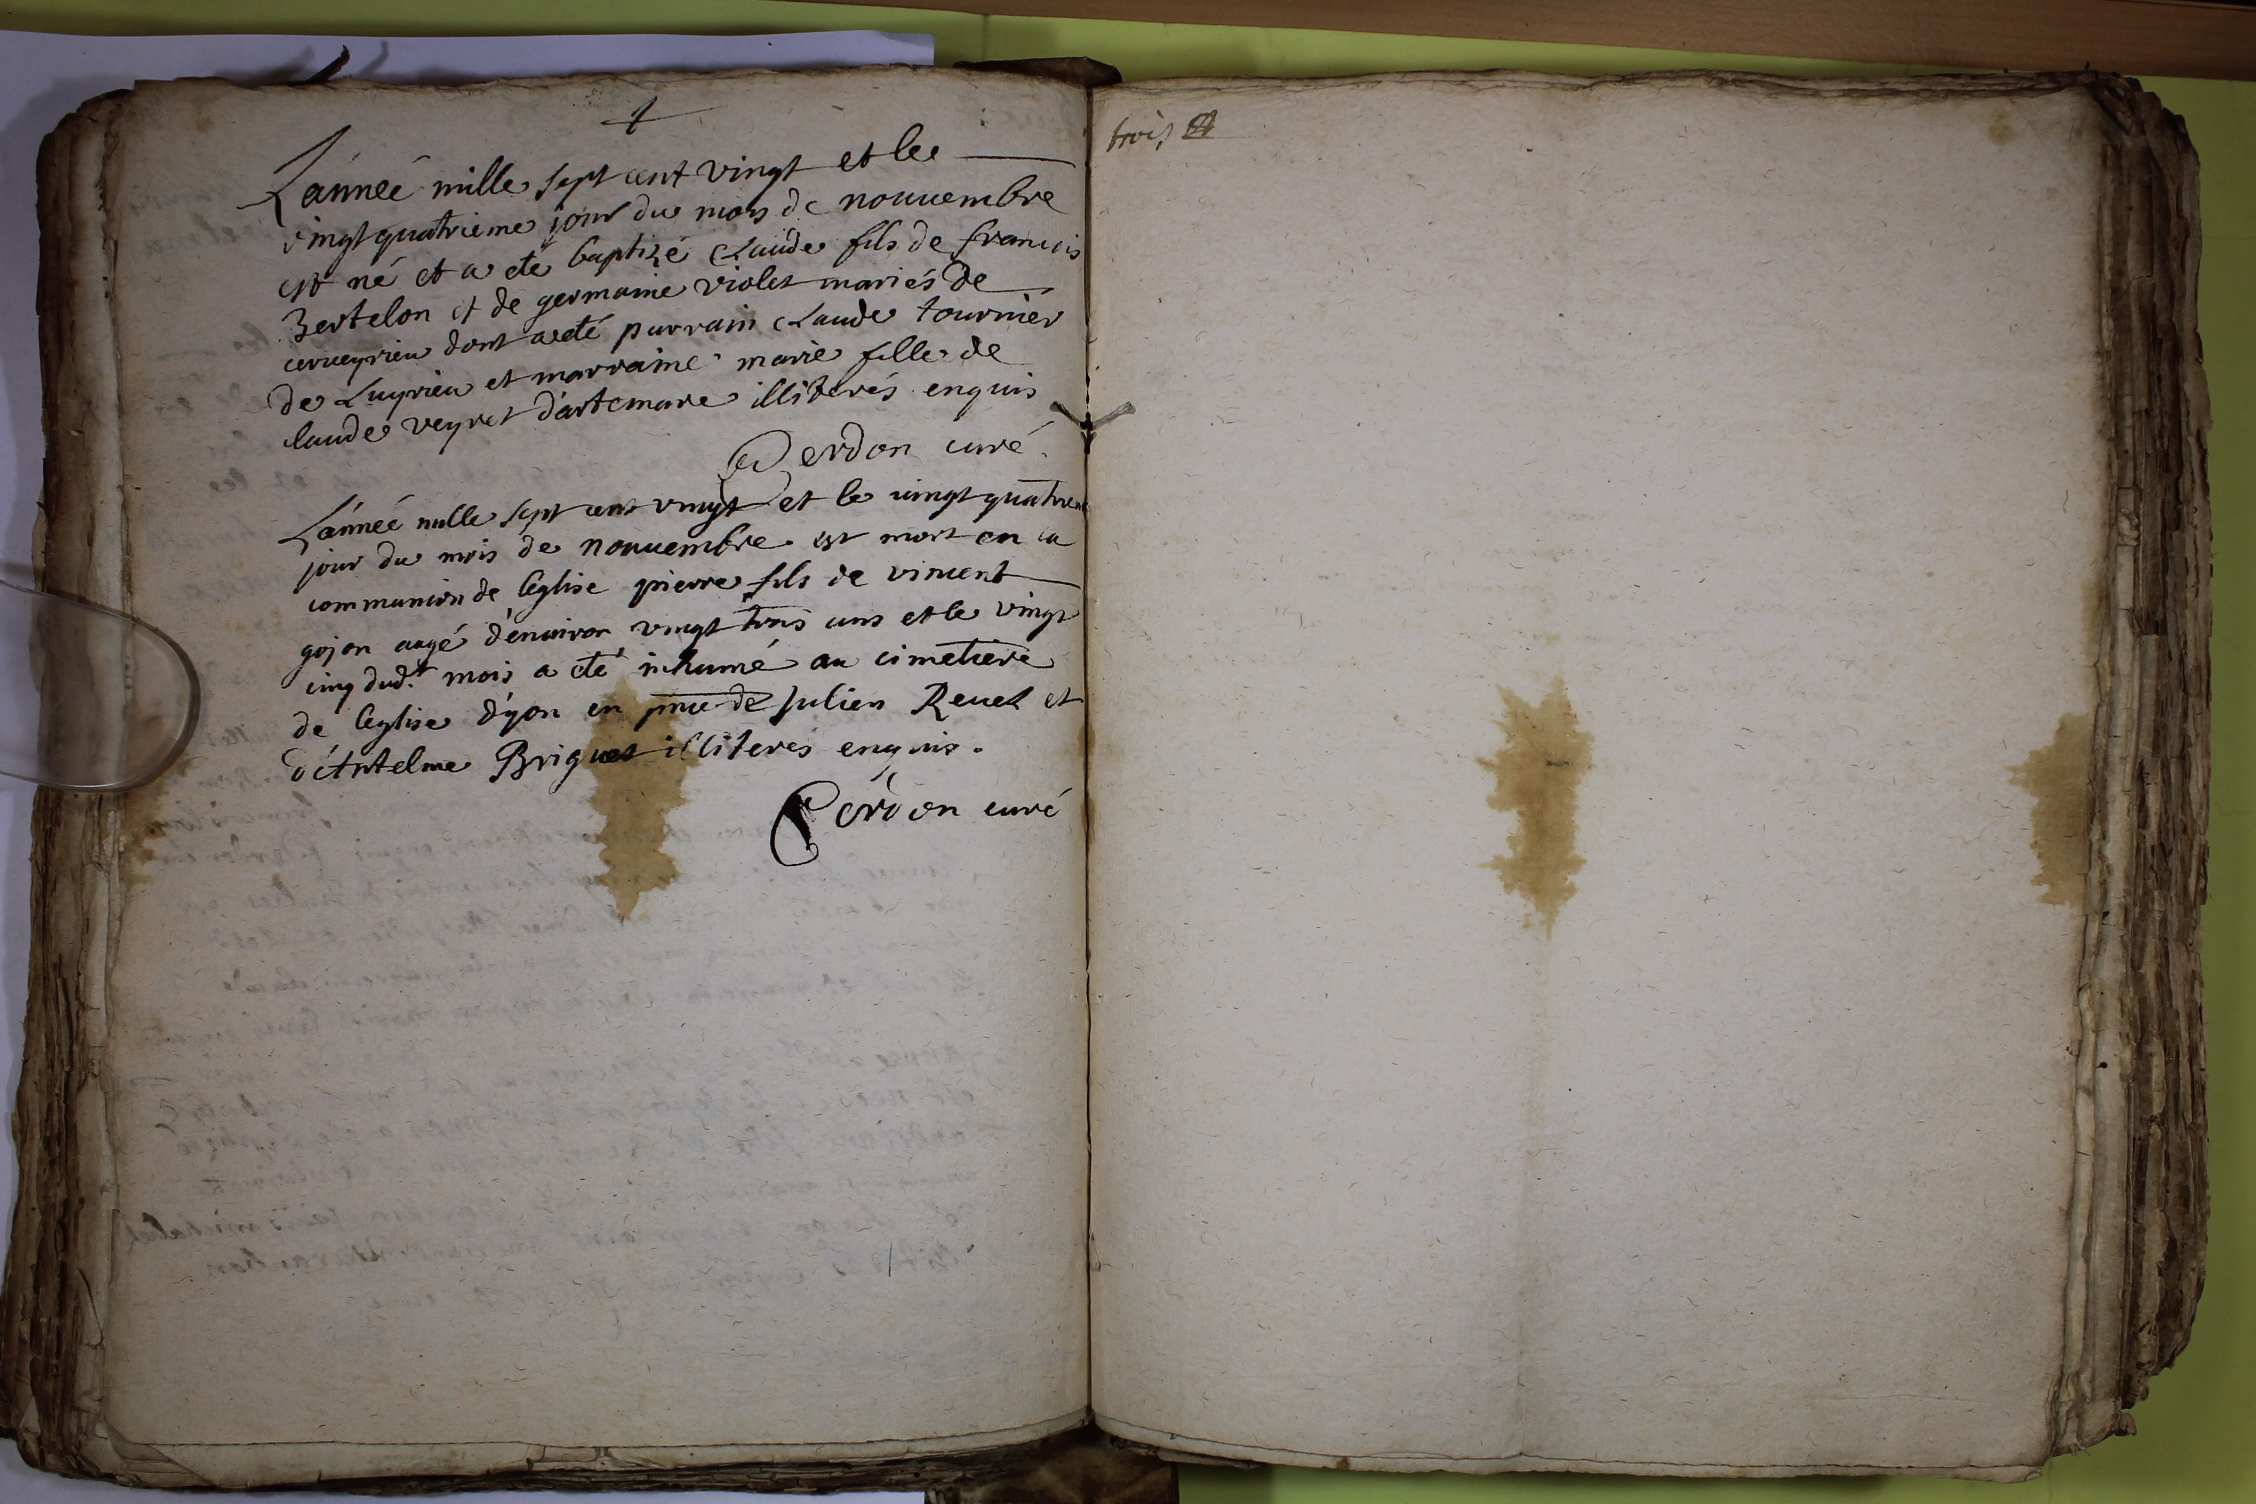 L'année mille sept cent vingt et le
vingt quatrieme jour du mois de nouuembre
est né et a eté baptizé Claude fils de francois
Bertelon et de germaine violet mariés de
cerueyrieu dont a eté parrain Claude tournier
de Luyrieu et marraine marie fille de
claude veyret d'artemare illiterés enquis
Perdon curé
L'année mille sept cent vingt et le vingt quatrieme
jour du mois de nouuembre est mort en la
communion de l'eglise pierre fils de vincent
gojon aagé d'enuiron vingt trois ans et le vingt
cinq dud.t mois a eté inhumé au cimetiere
de l'eglise d'yon en pnce de Julien Reuel et
d'Antelme Briguet illiteres enquis.
Perdon curé
trois